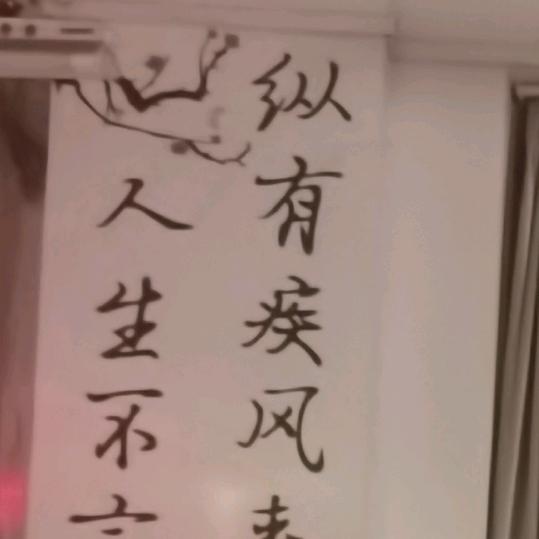 纵有疾风
人生不